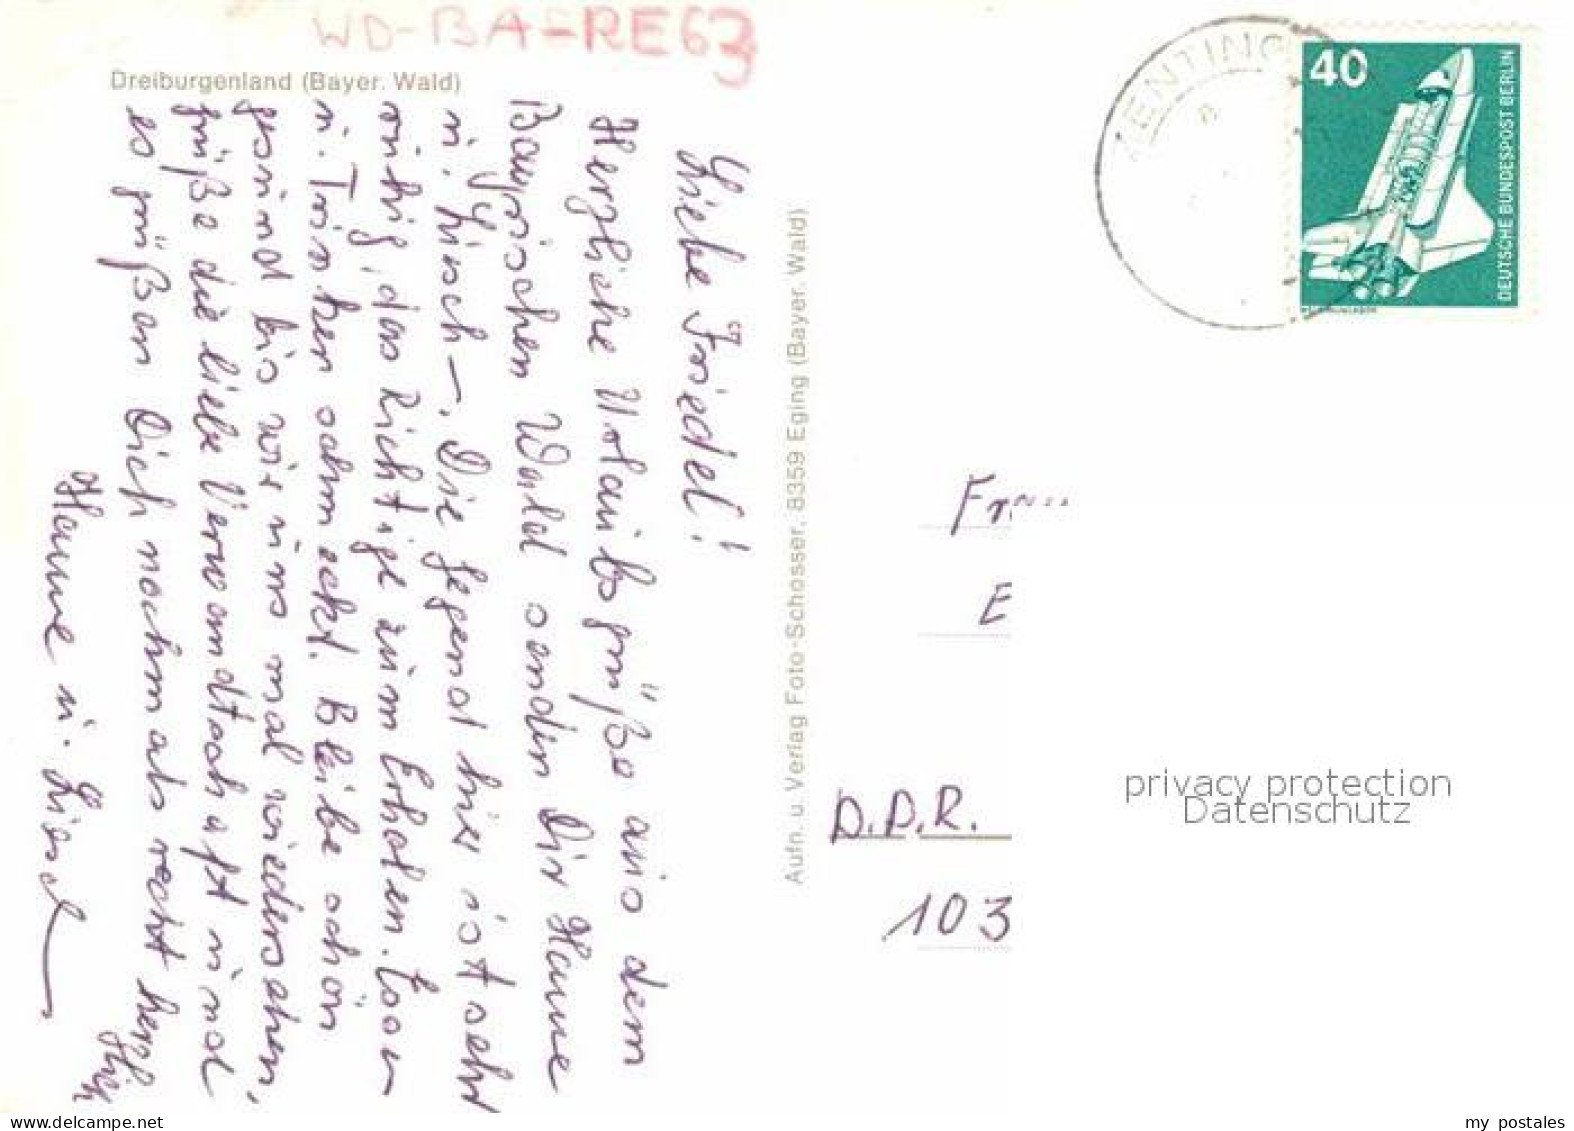 WD-BAF-RE63
Dreiburgenland (Bayer. Wald)
Liebe Friedel!
Herzliche Urlaubsgrüße aus dem
Bayrischen Wald senden Dir Hanne
u. Liesel. Die Gegend hier ist sehr
ruhig, das Richtige zum Erholen. Essen
u. Trinken schmeckt. Bleibe schön
gesund bis wir uns mal wiedersehen,
grüße die liebe Verwandtschaft und
es grüßen Dich nochmals recht herz
lich
Hanne u. Liesel
Aufn. u. Verlag Foto-Schosser, 8359 Eging (Bayer. Wald)
ZENTING
40
DEUTSCHE BUNDESPOST BERLIN
E
D.D.R.
103
privacy protection
Datenschutz
my postales